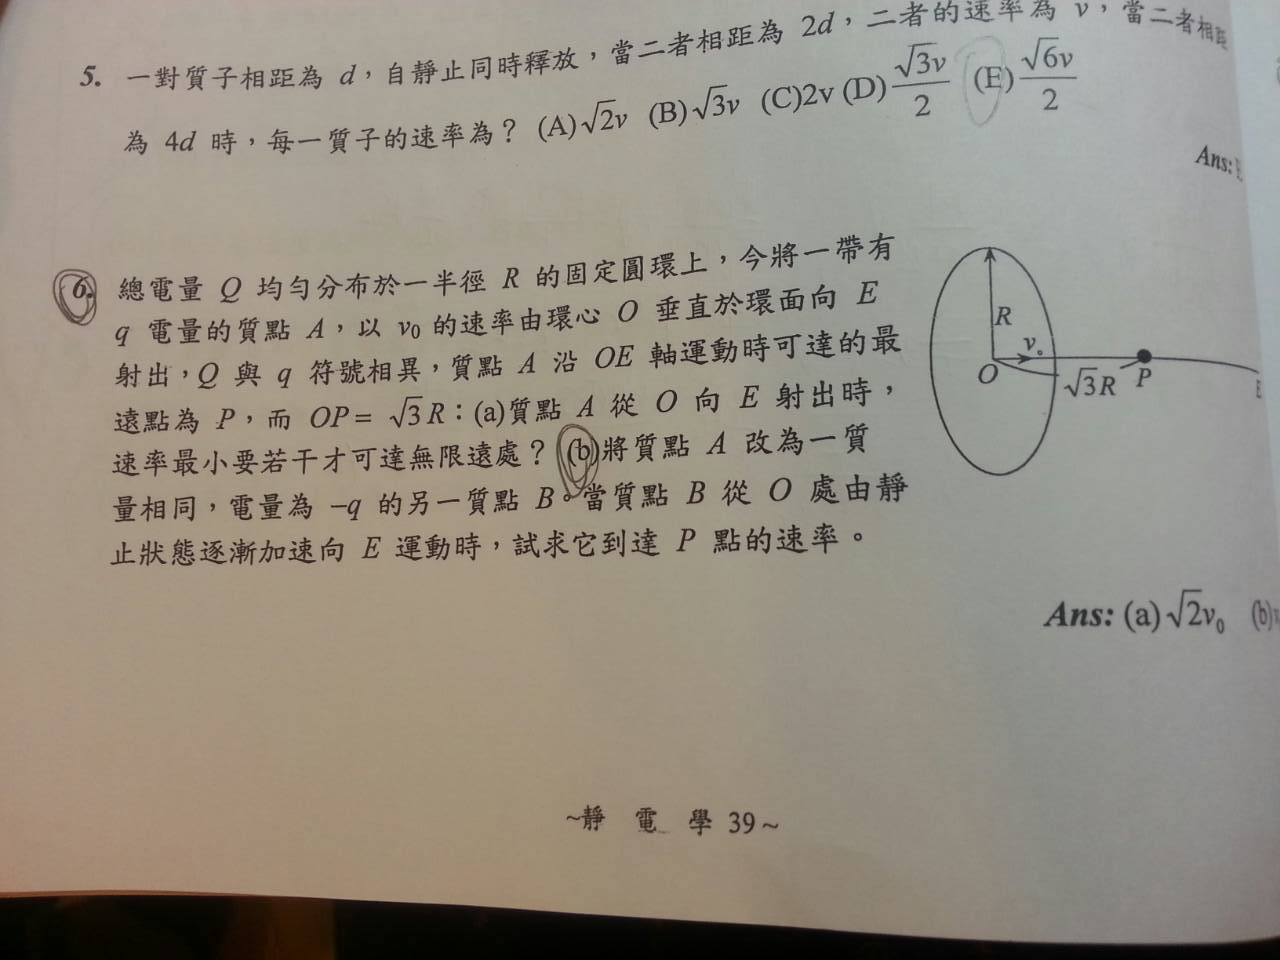 5. 一對質子相距為 d，自靜止同時釋放，當二者相距為 2d，二者的速率為 v，當二者相距
為 4d 時，每一質子的速率為？ (A)√2v (B)√3v (C)2v (D)√3v/2 (E)√6v/2
Ans:
6. 總電量 Q 均勻分布於一半徑 R 的固定圓環上，今將一帶有
q 電量的質點 A，以 v₀ 的速率由環心 O 垂直於環面向 E
射出，Q 與 q 符號相異，質點 A 沿 OE 軸運動時可達的最
遠點為 P，而 OP= √3R：(a)質點 A 從 O 向 E 射出時，
速率最小要若干才可達無限遠處？ (b)將質點 A 改為一質
量相同，電量為 −q 的另一質點 B。當質點 B 從 O 處由靜
止狀態逐漸加速向 E 運動時，試求它到達 P 點的速率。
R
v₀
O
√3R
P
E
Ans: (a)√2v₀ (b)
~靜 電 學 39~